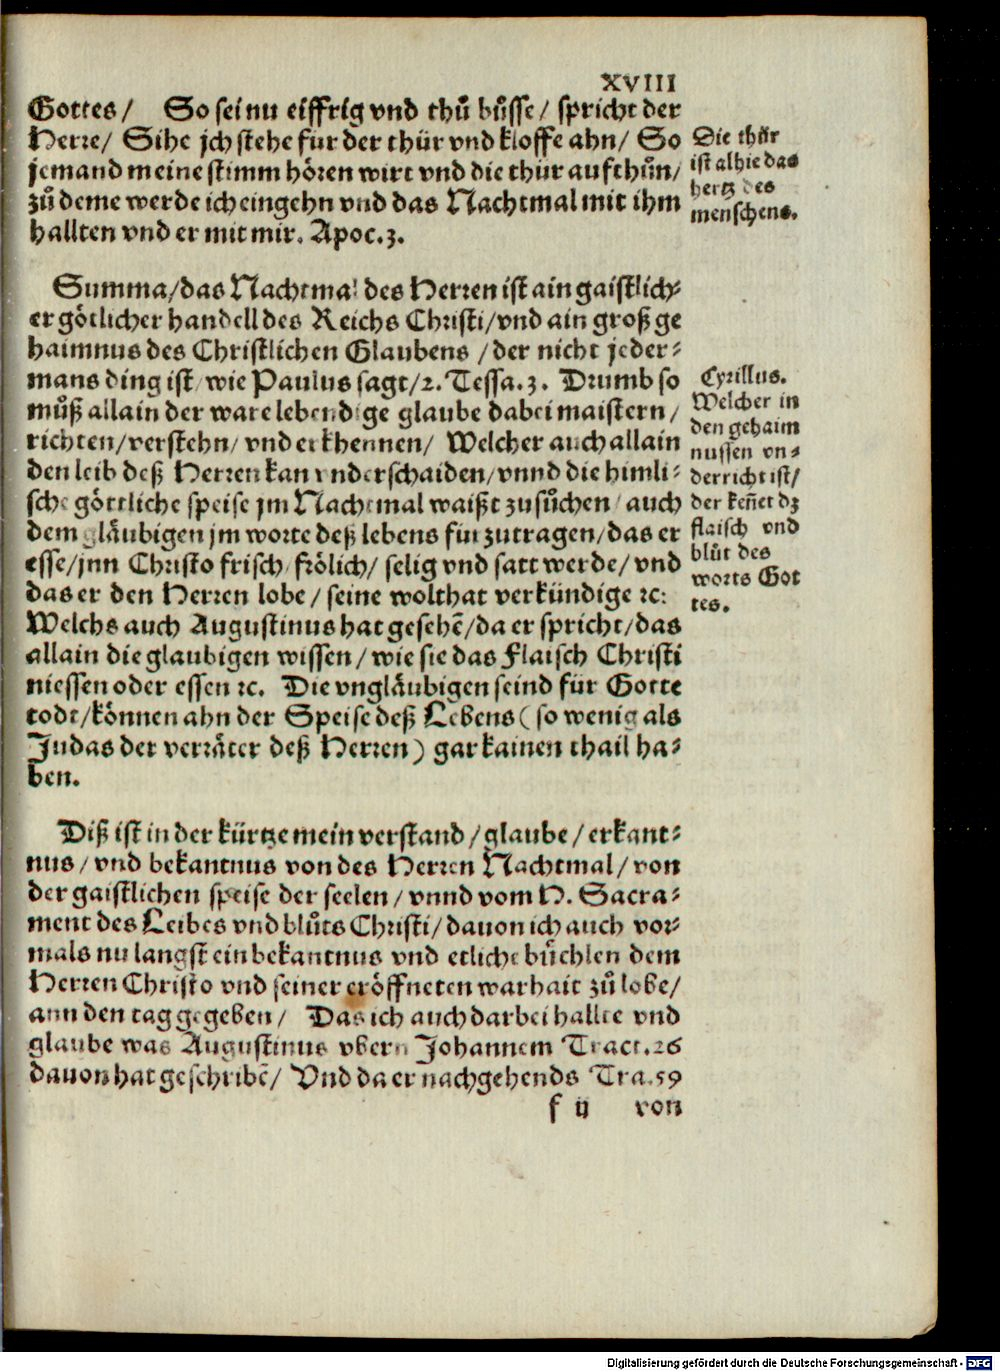 XVIII
Gottes/ So sei nu eiffrig vnd thuͦ buͦsse/ spricht der
Herre/ Sihe jch stehe für der thür vnd kloffe ahn/ So
jemand meine stimm hören wirt vnd die thür aufthuͦn/
zuͦ deme werde ich eingehn vnd das Nachtmal mit ihm
hallten vnd er mit mir. Apoc. 3.
Die thür
ist alhie das
hertz des
menschens.
Summa/das Nachtmal des Herren ist ain gaistlich⸗
er götlicher handell des Reichs Christi/vnd ain groß ge
haimnus des Christlichen Glaubens /der nicht jeder⸗
mans ding ist/ wie Paulus sagt/2. Tessa. 3. Drumb so
muͦß allain der ware lebendige glaube dabei maistern/
richten/verstehn/ vnd erkhennen/ Welcher auch allain
den leib deß Herren kan vnderschaiden/vnnd die himli⸗
sche göttliche speise jm Nachtmal waißt zu suͦchen/ auch
dem gläubigen jm worte deß lebens für zutragen/das er
esse/jnn Christo frisch/ frölich/ selig vnd satt werde/ vnd
das er den Herren lobe/ seine wolthat verkündige ꝛc:
Welchs auch Augustinus hat gesehē/da er spricht/das
allain die glaubigen wissen/ wie sie das Flaisch Christi
niessen oder essen ꝛc. Die vngläubigen seind für Gotte
todt/können ahn der Speise deß Lebens (so wenig als
Judas der verräter deß Herren) gar kainen thail ha⸗
ben.
Cyrillus.
Welcher in
den gehaim
nussen vn⸗
derricht ist/
der keñet dz
flaisch vnd
bluͦt des
worts Got
tes.
Diß ist in der kürtze mein verstand/glaube/erkant⸗
nus/ vnd bekantnus von des Herren Nachtmal/ von
der gaistlichen speise der seelen/ vnnd vom H. Sacra⸗
ment des Leibes vnd bluͦts Christi/ dauon ich auch vor⸗
mals nu langst ein bekantnus vnd etliche buͤchlen dem
Herren Christo vnd seiner eröffneten warhait zuͦ lobe/
ann den tag gegeben/ Das ich auch darbei hallte vnd
glaube was Augustinus vbern Johannem Tract. 26
dauon hat geschribē/ Vnd da er nachgehends Tra. 59
f ij von
Digitalisierung gefördert durch die Deutsche Forschungsgemeinschaft - DFG